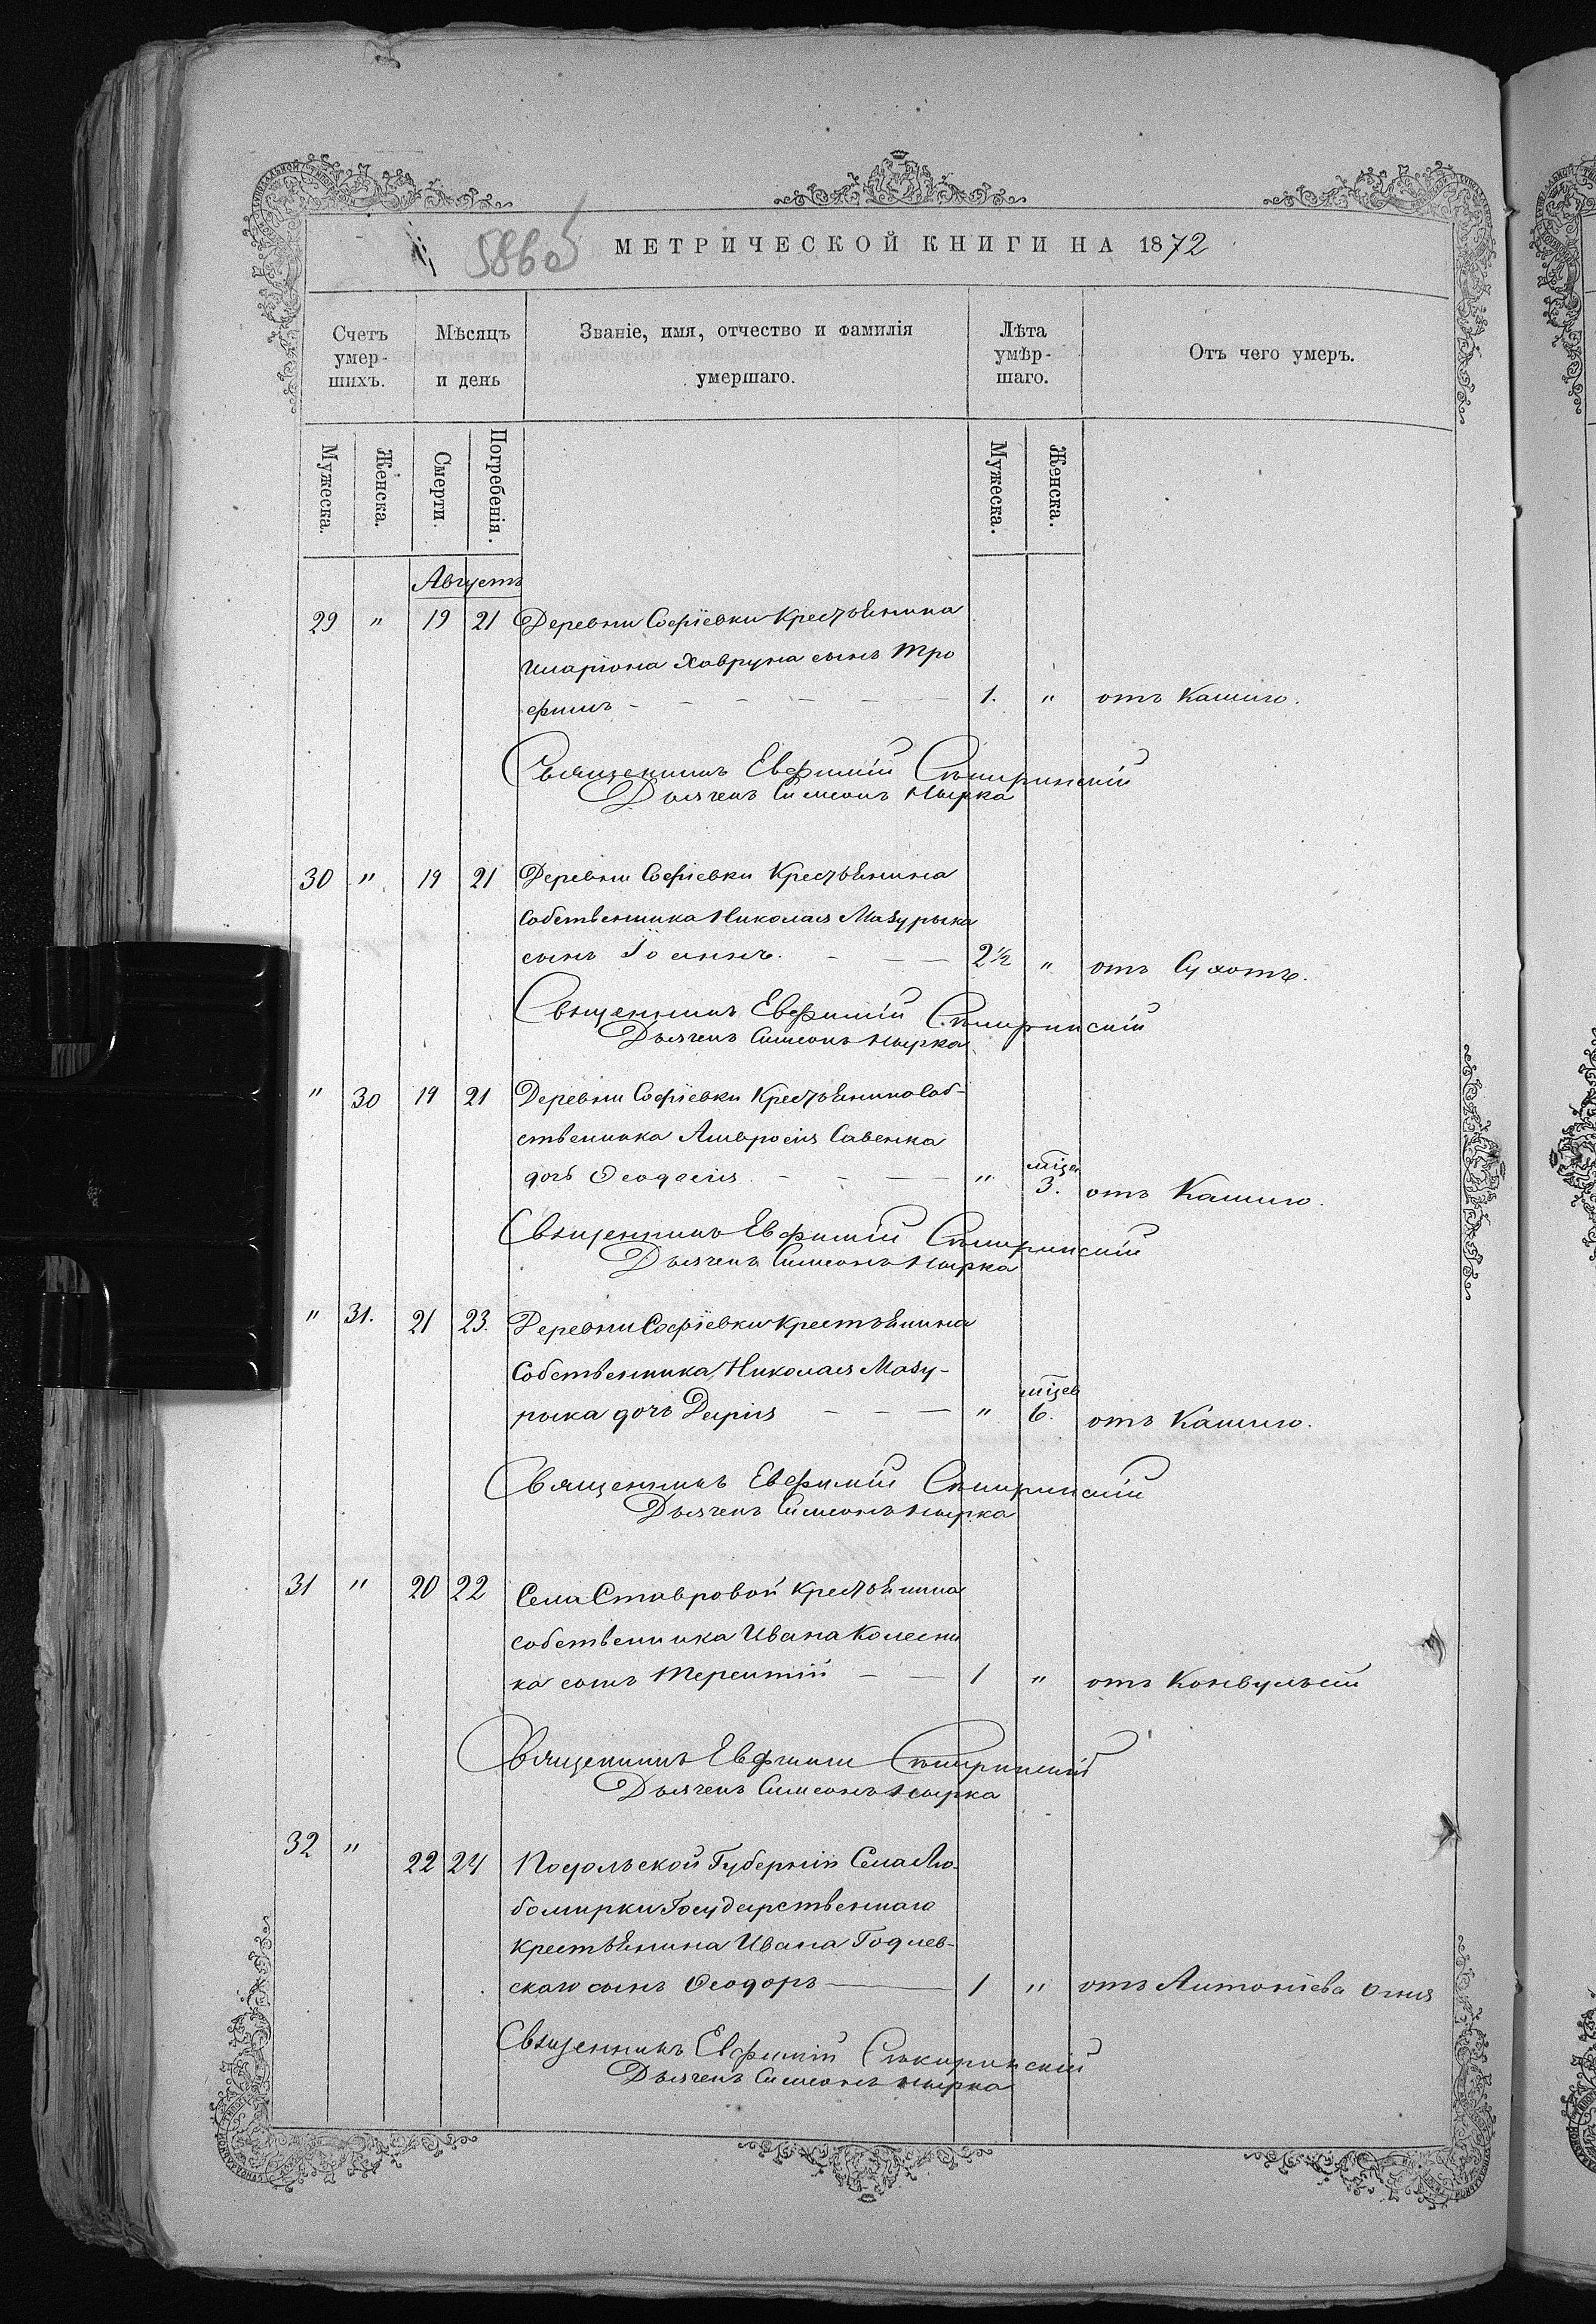 586об
МЕТРИЧЕСКОЙ КНИГИ НА 1872
Счетъ умер-шихъ.
Мѣсяцъ и день
Званіе, имя, отчество и фамилія умершаго.
Лѣта умѣр-шаго.
Отъ чего умеръ.
Мужеска. Женска. Смерти. Погребенія. Мужеска. Женска.
Августъ
29 " 19 21 Деревни Софіевки Крестьянина
Иларіона Ховруна сынъ Тро
фимъ - - - - - 1. " отъ Кашлю.
Священникъ Евфимій Сѣкиринскій
Дьячекъ Симеонъ Нырка
30 " 19 21 Деревни Софіевки Крестьянина
Собственника Николая Мазурыка
сынъ Іоаннъ. - - - 2 1/2 " отъ Сухотъ.
Священникъ Евфимій Сѣкиринскій
Дьячекъ Симеонъ Нырка
" 30 19 21 Деревни Софіевки Крестьянина Соб-
ственника Амвросія Савенка
дочь Ѳеодосія. - - - " мѣцей 3. отъ Кашлю.
Священникъ Евфимій Сѣкиринскій
Дьячекъ Симеонъ Нырка
" 31. 21 23. Деревни Софіевки Крестьянина
Собственника Николая Мазу-
рыка дочь Дарія - - - " мѣцев 6. отъ Кашлю.
Священникъ Евфимій Сѣкиринскій
Дьячекъ Симеонъ Нырка
31 " 20 22 Села Ставровой крестьянина
собственника Ивана Колесни
ка сынъ Терентій - - 1 " отъ Конвульсіи
Священникъ Евфимій Сѣкиринскій
Дьячекъ Симеонъ Нырка
32 " 22 24 Подольской Губерніи Села Лю-
бомирки Государственнаго
крестьянина Ивана Годлев-
скаго сынъ Ѳеодоръ - 1 " отъ Антоніева Огня
Священникъ Евфимій Сѣкиринскій
Дьячекъ Симеонъ Нырка